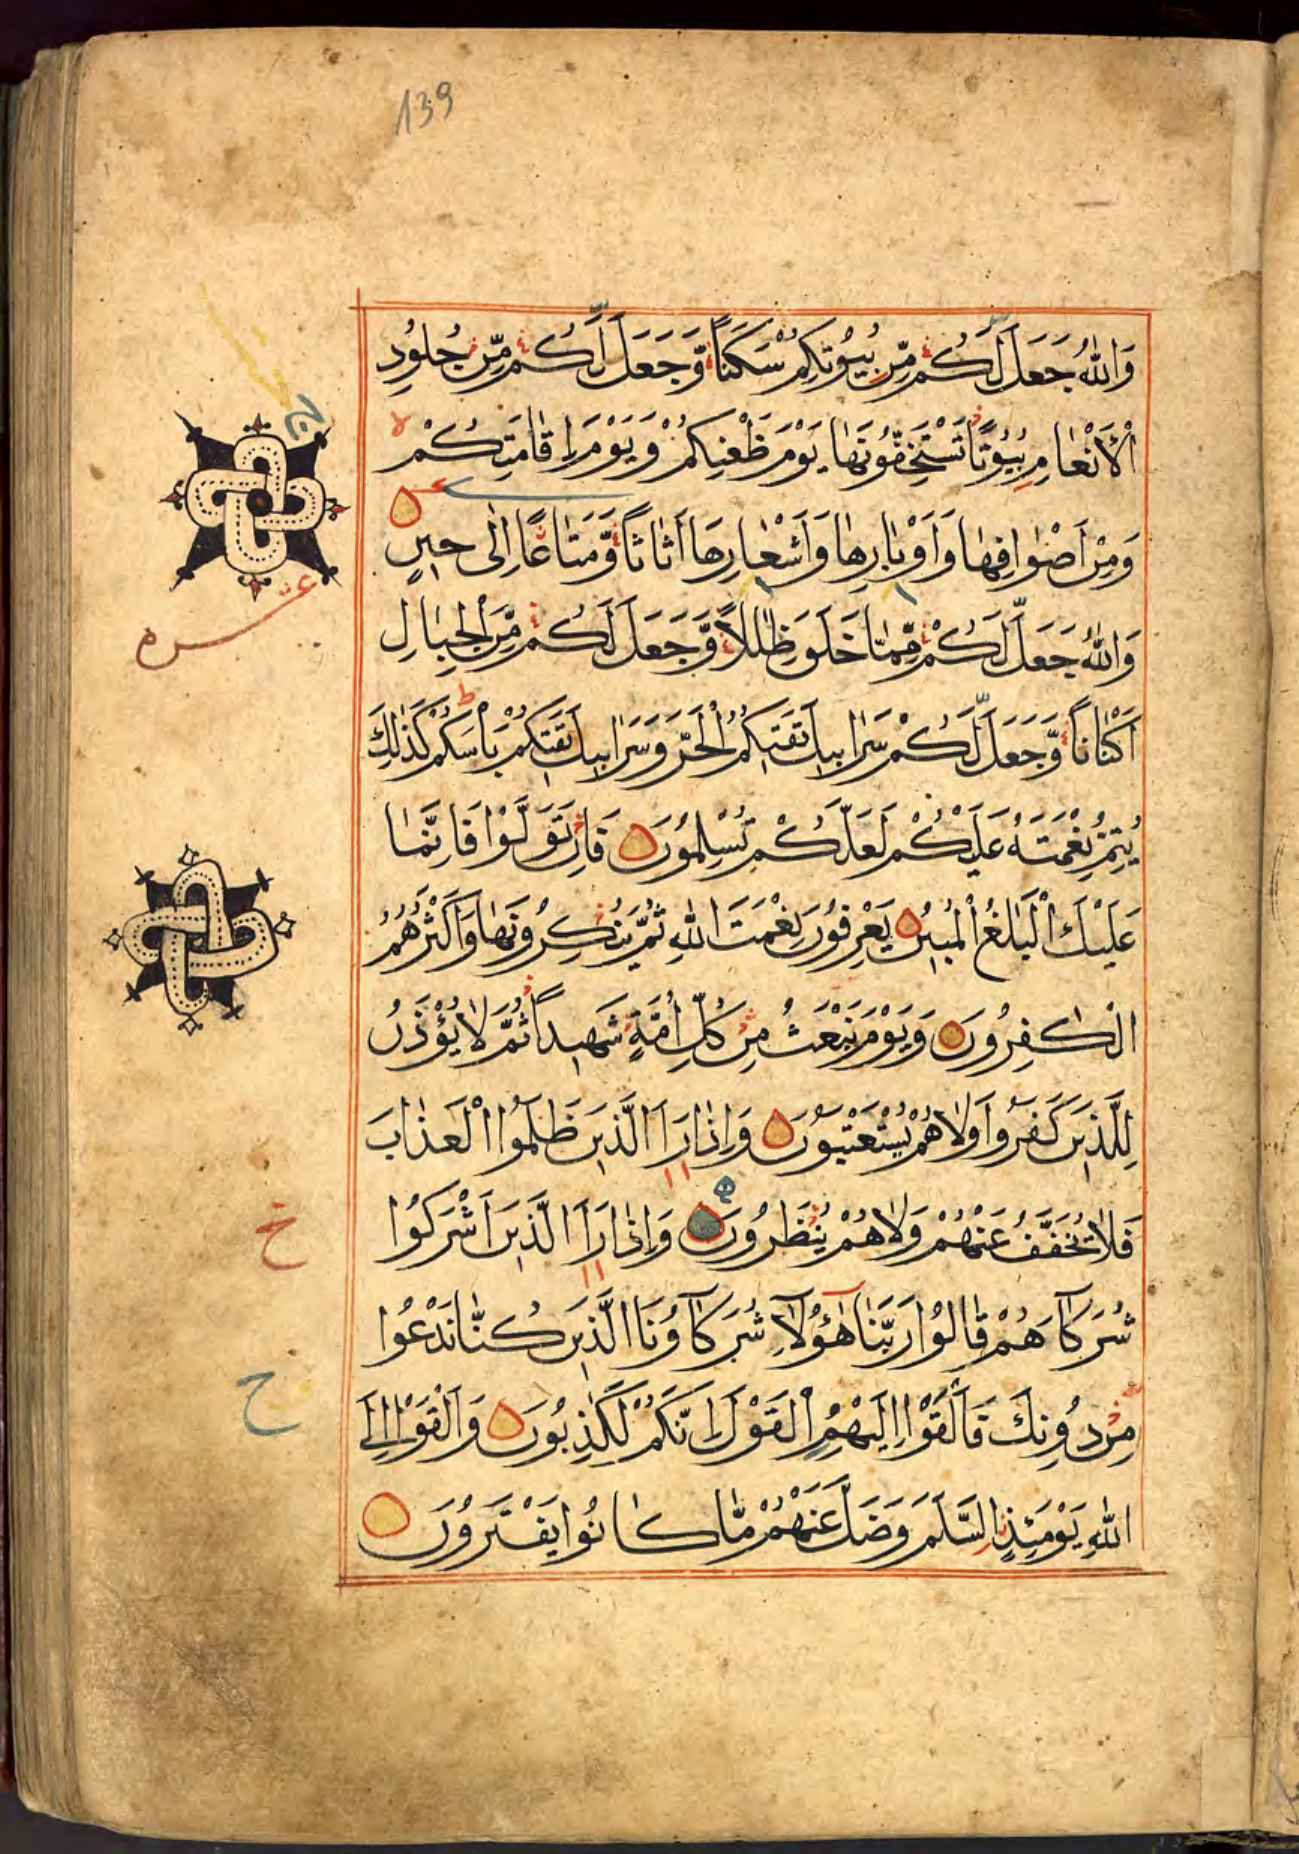 139
وَاللّٰهُ جَعَلَ لَكُمْ مِّنْ بُيُوْتِكُمْ سَكَنًا وَّجَعَلَ لَكُمْ مِّنْ جُلُوْدِ
الْاَنْعَامِ بُيُوْتًا تَسْتَخِفُّوْنَهَا يَوْمَ ظَعْنِكُمْ وَيَوْمَ اِقَامَتِكُمْ
وَمِنْ اَصْوَافِهَا وَاَوْبَارِهَا وَاَشْعَارِهَا اَثَاثًا وَّمَتَاعًا اِلٰى حِيْنٍ
وَاللّٰهُ جَعَلَ لَكُمْ مِّمَّا خَلَقَ ظِلٰلًا وَّجَعَلَ لَكُمْ مِّنَ الْجِبَالِ
اَكْنَانًا وَّجَعَلَ لَكُمْ سَرَابِيْلَ تَقِيْكُمُ الْحَرَّ وَسَرَابِيْلَ تَقِيْكُمْ بَاْسَكُمْ كَذٰلِكَ
يُتِمُّ نِعْمَتَهُ عَلَيْكُمْ لَعَلَّكُمْ تُسْلِمُوْنَ فَاِنْ تَوَلَّوْا فَاِنَّمَا
عَلَيْكَ الْبَلٰغُ الْمُبِيْنُ يَعْرِفُوْنَ نِعْمَتَ اللّٰهِ ثُمَّ يُنْكِرُوْنَهَا وَاَكْثَرُهُمُ
الْكٰفِرُوْنَ وَيَوْمَ نَبْعَثُ مِنْ كُلِّ اُمَّةٍ شَهِيْدًا ثُمَّ لَا يُؤْذَنُ
لِلَّذِيْنَ كَفَرُوْا وَلَا هُمْ يُسْتَعْتَبُوْنَ وَاِذَا رَاَ الَّذِيْنَ ظَلَمُوا الْعَذَابَ
فَلَا يُخَفَّفُ عَنْهُمْ وَلَا هُمْ يُنْظَرُوْنَ وَاِذَا رَاَ الَّذِيْنَ اَشْرَكُوْا
شُرَكَآءَهُمْ قَالُوْا رَبَّنَا هٰٓؤُلَآءِ شُرَكَآؤُنَا الَّذِيْنَ كُنَّا نَدْعُوْا
مِنْ دُوْنِكَ فَاَلْقَوْا اِلَيْهِمُ الْقَوْلَ اِنَّكُمْ لَكٰذِبُوْنَ وَاَلْقَوْا اِلَى
اللّٰهِ يَوْمَئِذٍ السَّلَمَ وَضَلَّ عَنْهُمْ مَّا كَانُوْا يَفْتَرُوْنَ
خ
ح